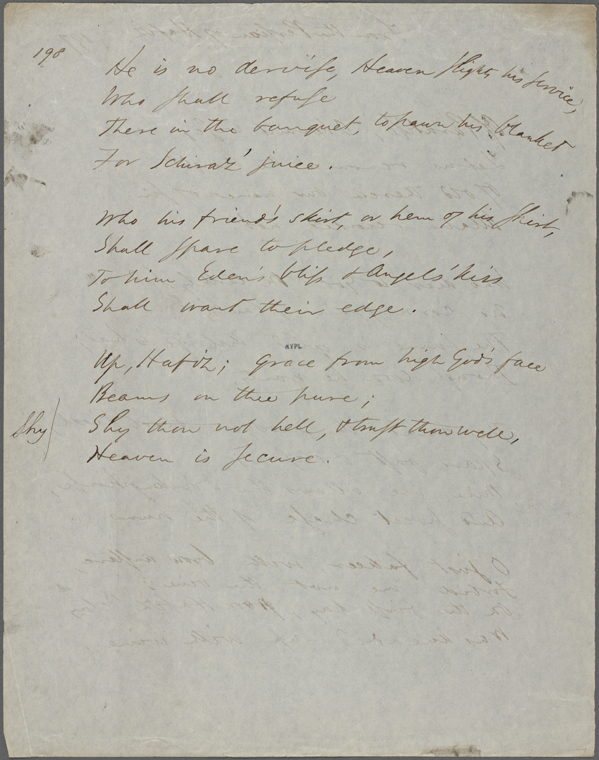 198
He is no dervise, Heaven slights his service,
Who shall refuse
There in the banquet, to pawn his blanket
For Schiraz' juice.
Who his friend's skirt, or hem of his shirt,
Shall spare to pledge,
To him Eden's bliss & Angels' kiss
Shall want their edge.
NYPL
Up, Hafiz; grace from high God's face
Beams on thee pure;
Shy/ Shy thou not hell, & trust thou well,
Heaven is secure.